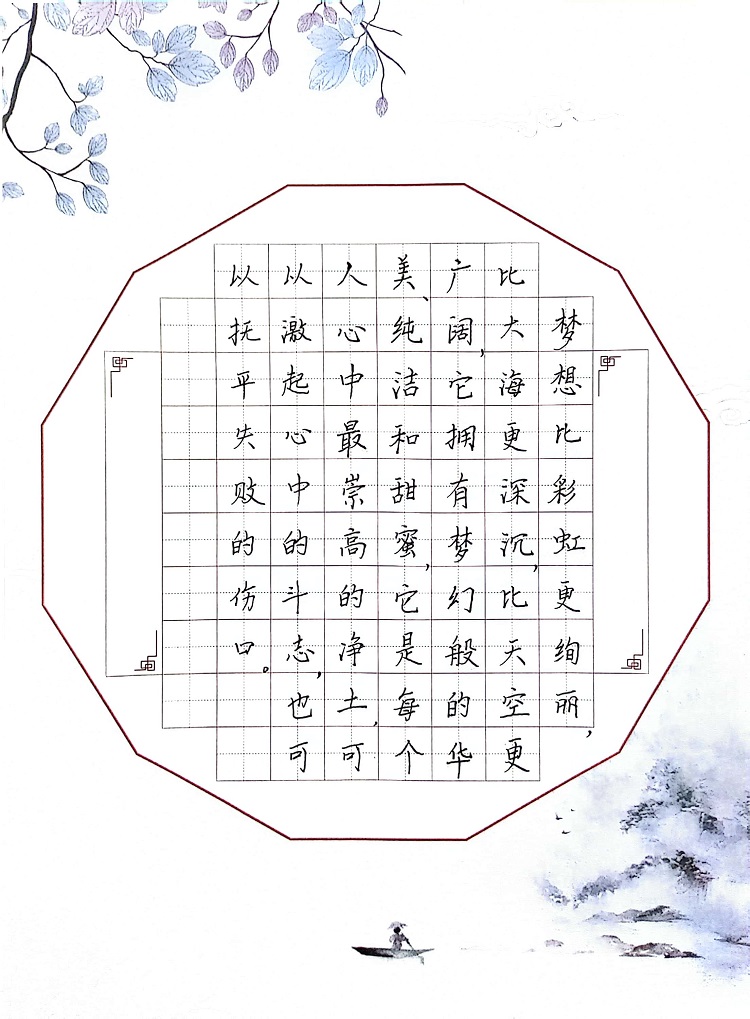 梦想比彩虹更绚丽，
比大海更深沉，比天空更
广阔，它拥有梦幻般的华
美、纯洁和甜蜜，它是每个
人心中最崇高的净土，可
以激起心中的斗志，也可
以抚平失败的伤口。